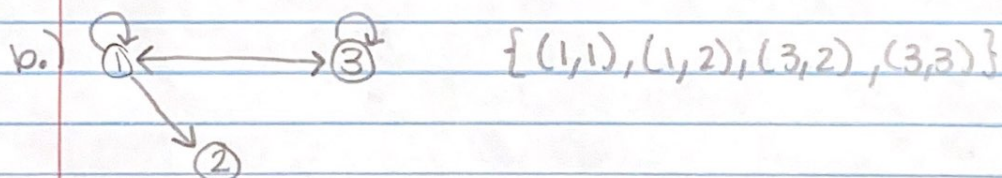 b.) 1 3 {(1,1), (1,2), (3,2), (3,3)}
2